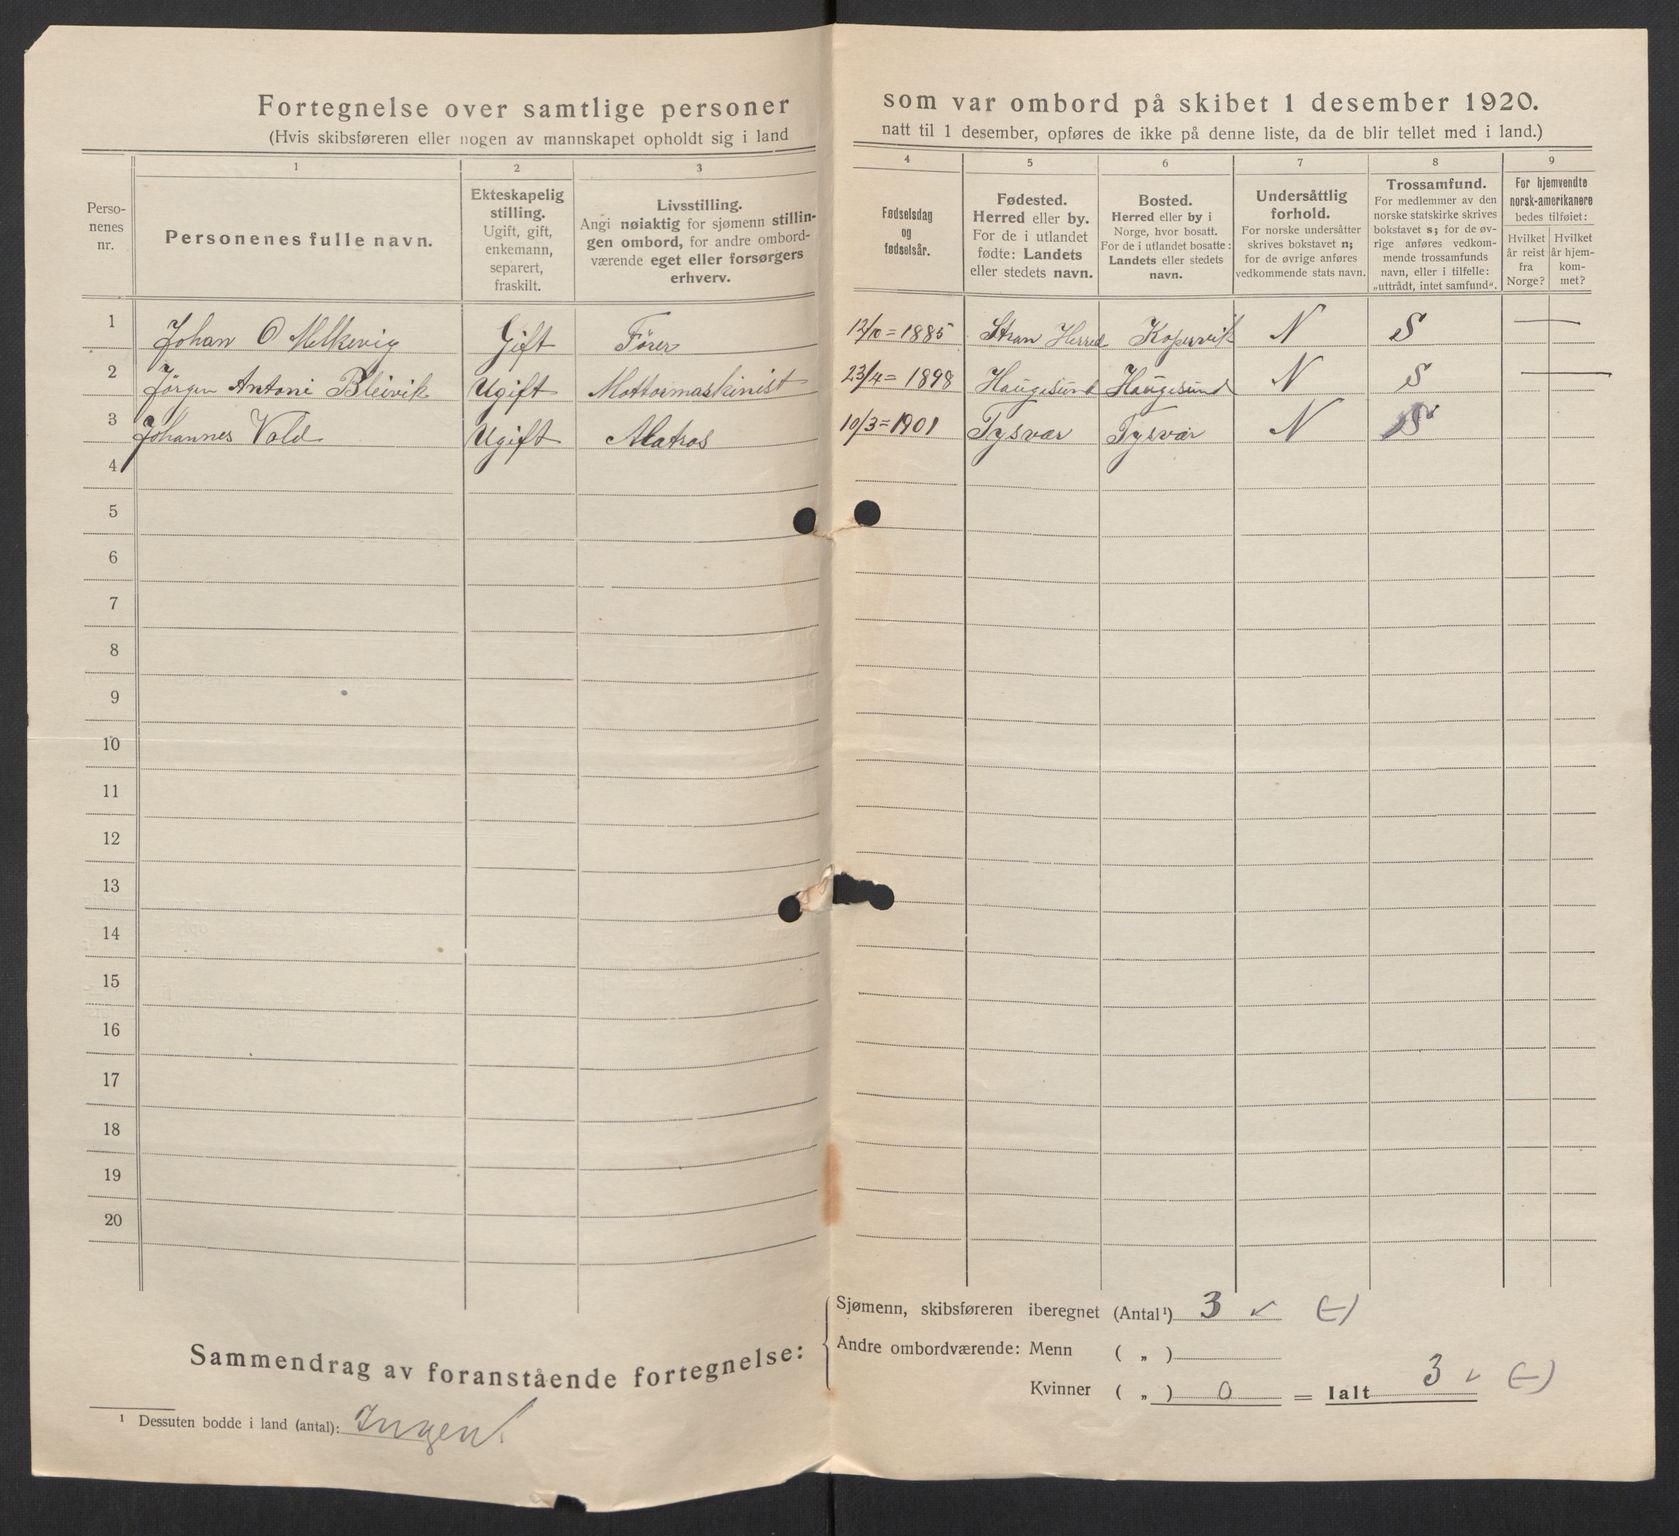 Fortegnelse over samtlige personer som var ombord på skibet 1 desember 1920.
(Hvis skibsføreren eller nogen av mannskapet opholdt sig i land natt til 1 desember, opføres de ikke på denne liste, da de blir tellet med i land.)
1 2 3 4 5 6 7 8 9
Perso-
nenes
nr.
Personenes fulle navn.
Ekteskapelig
stilling.
Ugift, gift,
enkemann,
separert,
fraskilt.
Livsstilling.
Angi nøiaktig for sjømenn stillin-
gen ombord, for andre ombord-
værende eget eller forsørgers
erhverv.
Fødselsdag
og
fødselsår.
Fødested.
Herred eller by.
For de i utlandet
fødte: Landets
eller stedets navn.
Bosted.
Herred eller by i
Norge, hvor bosatt.
For de i utlandet bosatte:
Landets eller stedets
navn.
Undersåttlig
forhold.
For norske undersåtter
skrives bokstavet n;
for de øvrige anføres
vedkommende stats navn.
Trossamfund.
For medlemmer av den
norske statskirke skrives
bokstavet s; for de øv-
rige anføres vedkom-
mende trossamfunds
navn, eller i tilfelle:
„uttrådt, intet samfund“.
For hjemvendte
norsk-amerikanere
bedes tilføiet:
Hvilket
år reist
fra
Norge?
Hvilket
år hjem-
kom-
met?
1 Johan O Melkevig Gift Fører 12/10=1885 Stran Herred Kopervik N S —
2 Jørgen Antoni Bleivik Ugift Mottormaskinist 23/4=1898 Haugesund Haugesund N S —
3 Johannes Vold Ugift Matros 10/3=1901 Tysvær Tysvær N S
4
5
6
7
8
9
10
11
12
13
14
15
16
17
18
19
20
Sammendrag av foranstående fortegnelse:
Sjømenn, skibsføreren iberegnet (Antal¹) 3 ✓ (–)
Andre ombordværende: Menn ( „ )
Kvinner ( „ ) 0 = Ialt 3 ✓ (–)
¹ Dessuten bodde i land (antal): Ingen!